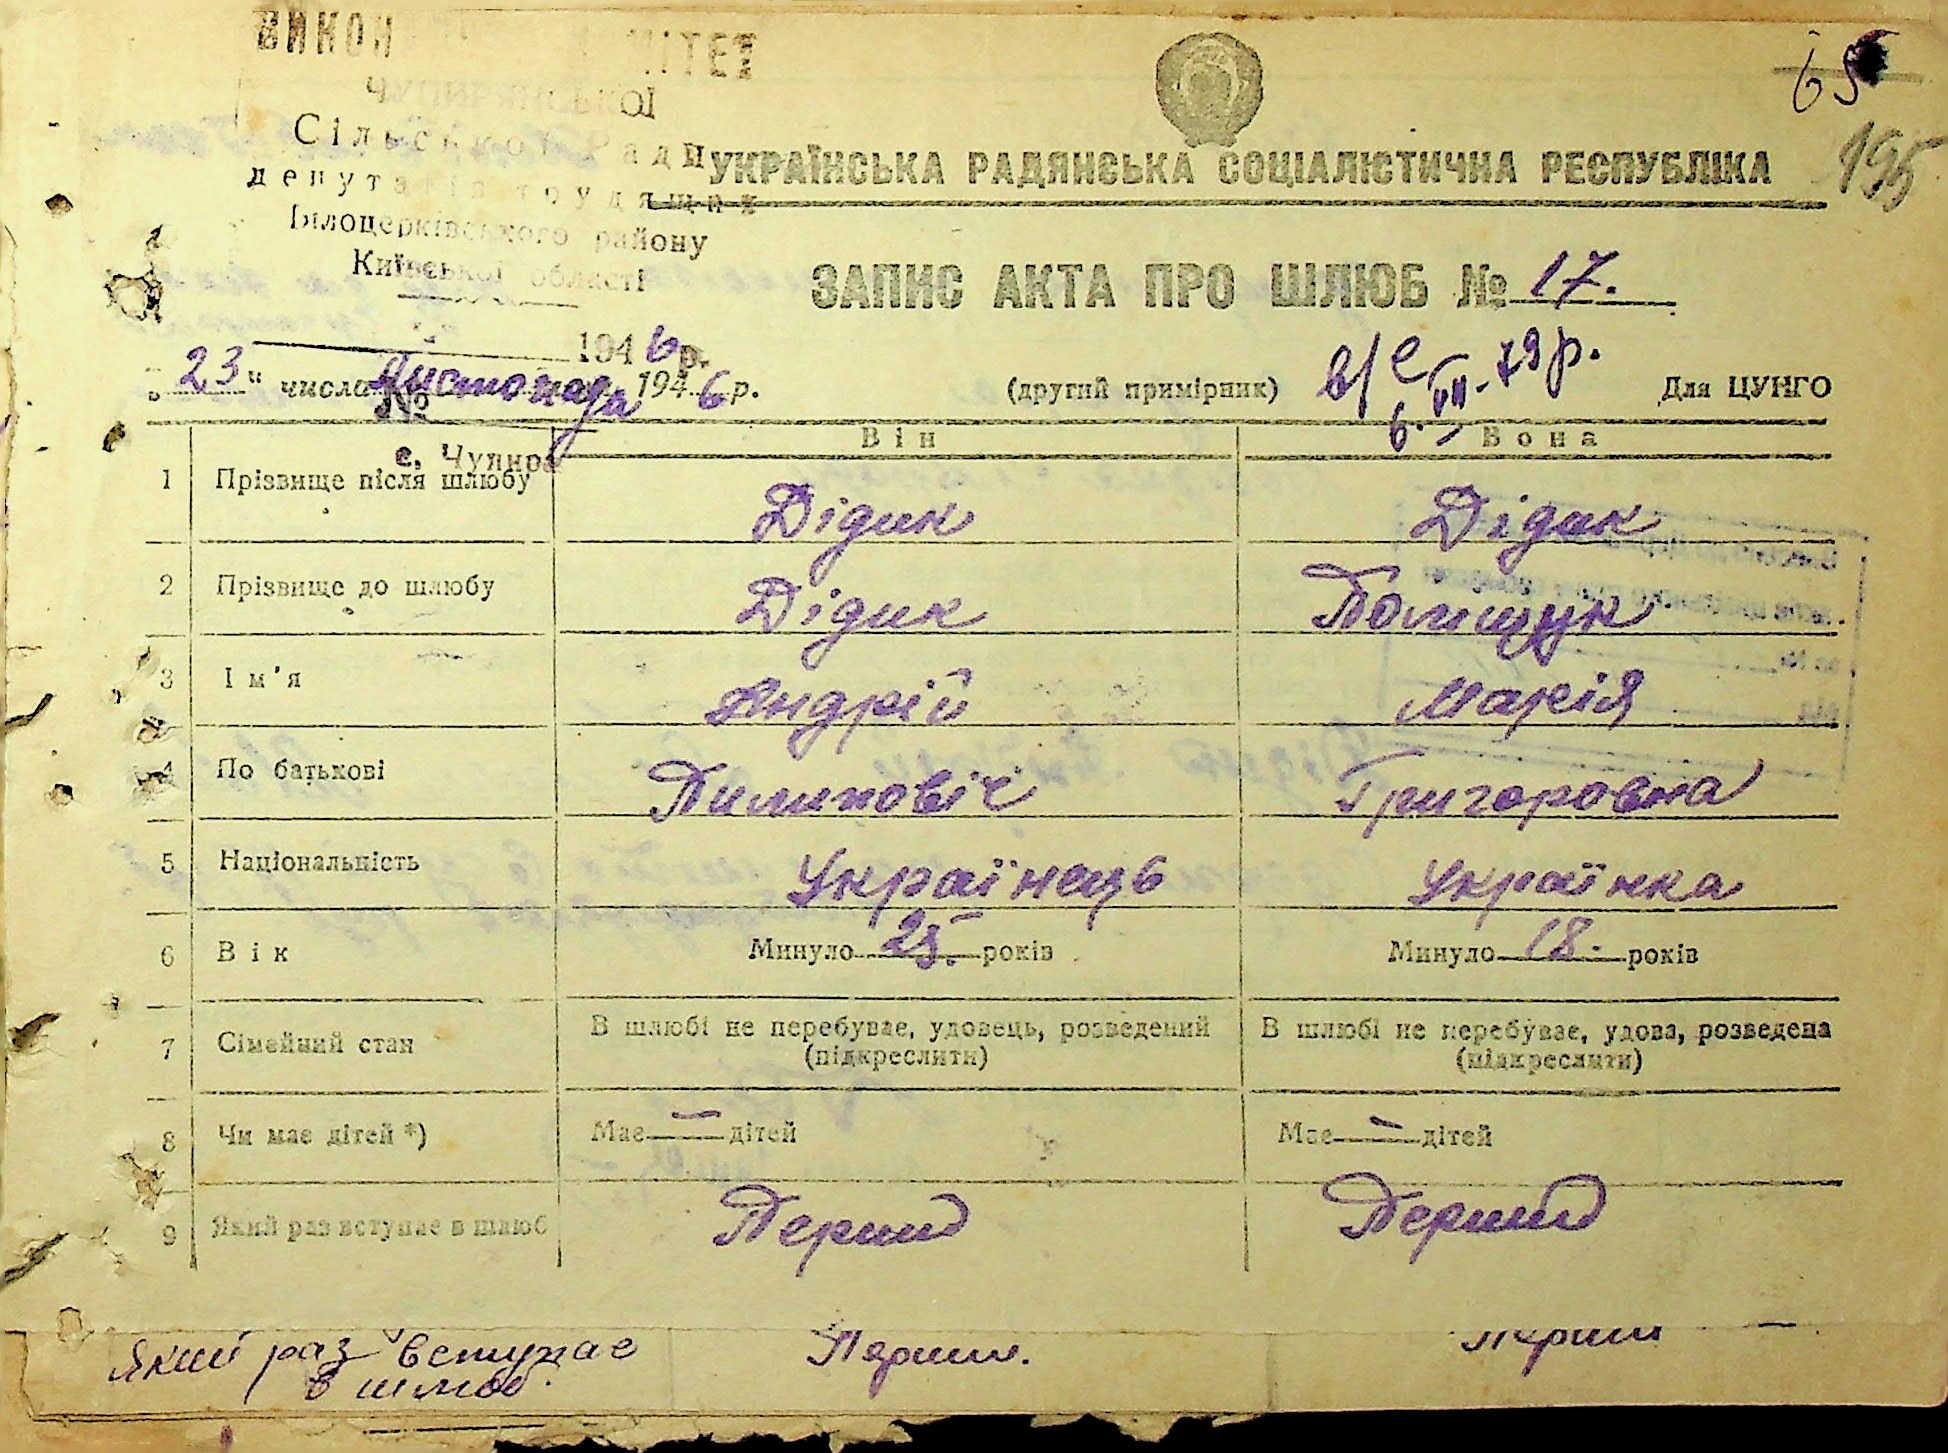 ЧУПИРЯНСЬКОЇ
Сільської Ради
депутатів трудящих
Білоцерківського району
Київської області
1946 р.
№
с. Чупира
65
195
УКРАЇНСЬКА РАДЯНСЬКА СОЦІАЛІСТИЧНА РЕСПУБЛІКА
ЗАПИС АКТА ПРО ШЛЮБ № 17.
„23" числа Листопада 1946 р. (другий примірник) Для ЦУНГО
Він Вона
1 Прізвище після шлюбу Дідик Дідик
2 Прізвище до шлюбу Дідик Поліщук
3 Ім'я Андрій Марія
4 По батькові Пилиповіч Григоровна
5 Національність Українець Українка
6 Вік Минуло 25. років Минуло 18. років
7 Сімейний стан В шлюбі не перебуває, удовець, розведений В шлюбі не перебуває, удова, розведена
(підкреслити) (підкреслити)
8 Чи має дітей *) Має — дітей Має — дітей
9 Який раз вступає в шлюб Перший Перший
Який раз вступає Перший. Перший —
в шлюб.